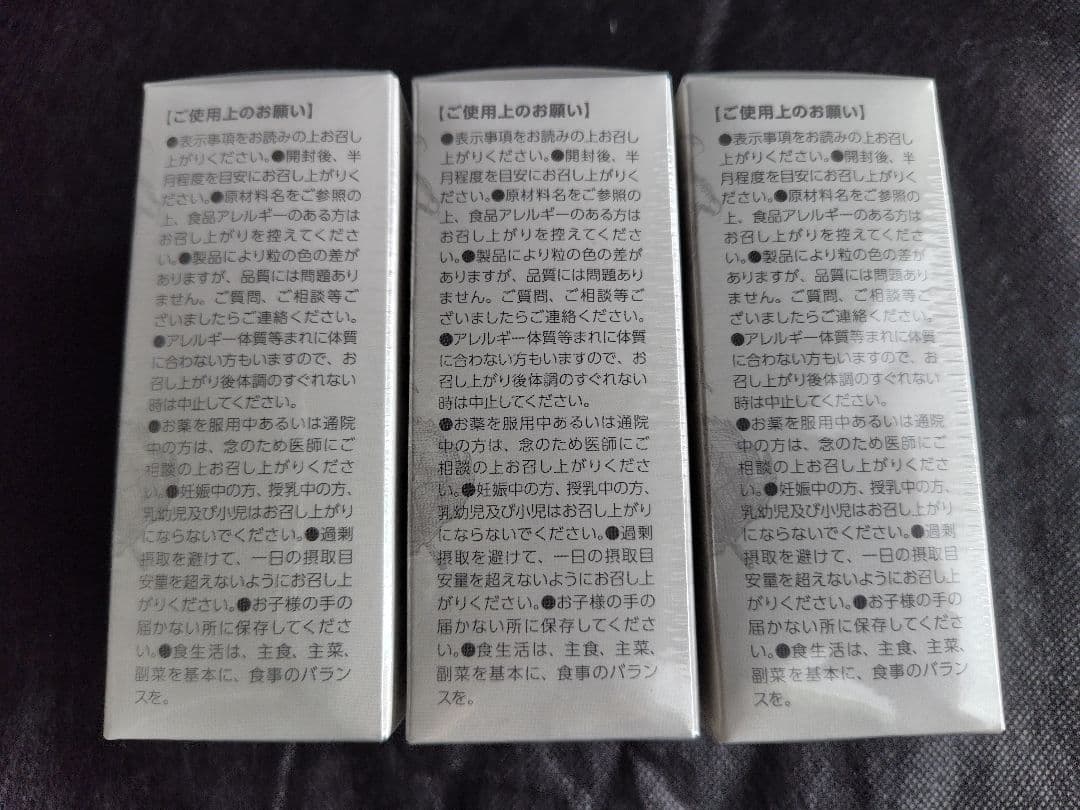 【ご使用上のお願い】
●表示事項をお読みの上お召し
上がりください。●開封後、半
月程度を目安にお召し上がりく
ださい。●原材料名をご参照の
上、食品アレルギーのある方は
お召し上がりを控えてくださ
い。●製品により粒の色の差が
ありますが、品質には問題あり
ません。ご質問、ご相談等ご
ざいましたらご連絡ください。
●アレルギー体質等まれに体質
に合わない方もいますので、お
召し上がり後体調のすぐれない
時は中止してください。
●お薬を服用中あるいは通院
中の方は、念のため医師にご
相談の上お召し上がりくださ
い。●妊娠中の方、授乳中の方、
乳幼児及び小児はお召し上がり
にならないでください。●過剰
摂取を避けて、一日の摂取目
安量を超えないようにお召し上
がりください。●お子様の手の
届かない所に保存してくださ
い。●食生活は、主食、主菜、
副菜を基本に、食事のバラン
スを。
【ご使用上のお願い】
●表示事項をお読みの上お召し
上がりください。●開封後、半
月程度を目安にお召し上がりく
ださい。●原材料名をご参照の
上、食品アレルギーのある方は
お召し上がりを控えてくださ
い。●製品により粒の色の差が
ありますが、品質には問題あり
ません。ご質問、ご相談等ご
ざいましたらご連絡ください。
●アレルギー体質等まれに体質
に合わない方もいますので、お
召し上がり後体調のすぐれない
時は中止してください。
●お薬を服用中あるいは通院
中の方は、念のため医師にご
相談の上お召し上がりくださ
い。●妊娠中の方、授乳中の方、
乳幼児及び小児はお召し上がり
にならないでください。●過剰
摂取を避けて、一日の摂取目
安量を超えないようにお召し上
がりください。●お子様の手の
届かない所に保存してくださ
い。●食生活は、主食、主菜、
副菜を基本に、食事のバラン
スを。
【ご使用上のお願い】
●表示事項をお読みの上お召し
上がりください。●開封後、半
月程度を目安にお召し上がりく
ださい。●原材料名をご参照の
上、食品アレルギーのある方は
お召し上がりを控えてくださ
い。●製品により粒の色の差が
ありますが、品質には問題あり
ません。ご質問、ご相談等ご
ざいましたらご連絡ください。
●アレルギー体質等まれに体質
に合わない方もいますので、お
召し上がり後体調のすぐれない
時は中止してください。
●お薬を服用中あるいは通院
中の方は、念のため医師にご
相談の上お召し上がりくださ
い。●妊娠中の方、授乳中の方、
乳幼児及び小児はお召し上がり
にならないでください。●過剰
摂取を避けて、一日の摂取目
安量を超えないようにお召し上
がりください。●お子様の手の
届かない所に保存してくださ
い。●食生活は、主食、主菜、
副菜を基本に、食事のバラン
スを。